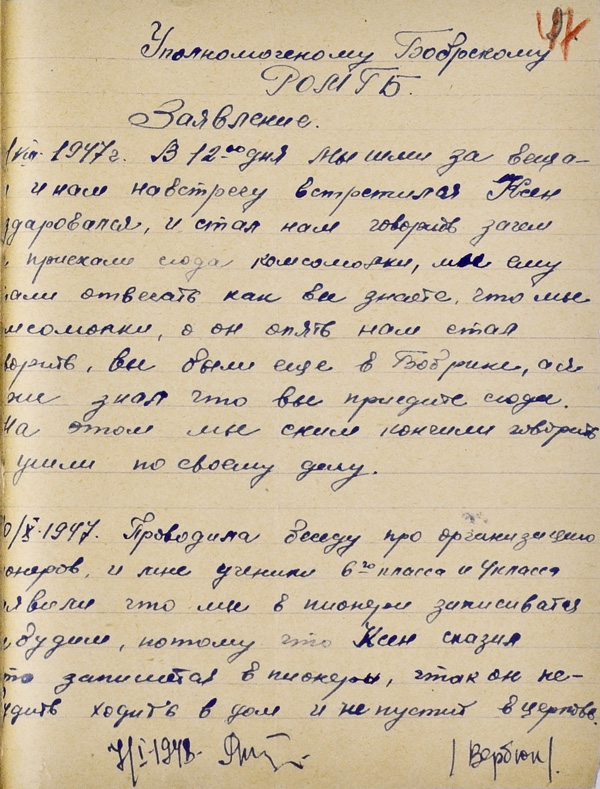 Уполномоченому Бобрскому
РОМГБ.
Заявление.
VIII. 1947 г. В 12 00 дня мы шли за веща-
и нам навстречу встретился Ксен
здаровался, и стал нам говорить зачем
приехали сюда комсомолки, мы ему
али отвечать как вы знаете, что мы
мсомолки, а он опять нам стал
ворить, вы были еще в Бобрки, а я
же знал что вы приедите сюда.
На этом мы сним кончили говорить
ушли по своему делу.
0/X-1947. Проводила беседу про организацию
онеров, и мне ученики 6го класса и 4 класса
явили что мы в пионеры записыватся
будим, потому что Ксен сказал
то запишется в пионеры, чтак он не-
удить ходить в дом и не пустит в церковь.
7/I-1948.
/Вербюк/.